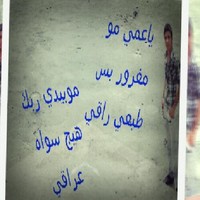 ياعمي مو
مغرور بس
طبعي راقي
موبيدي ربك
هيج سواة
عراقي